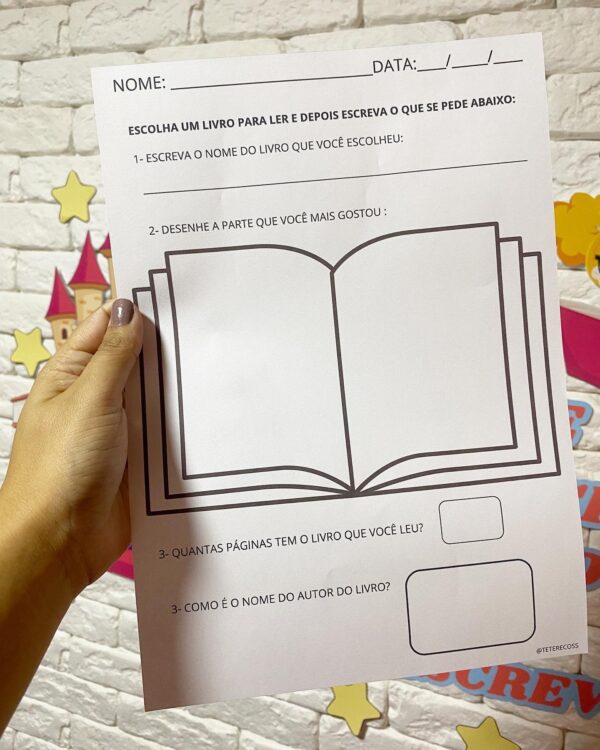 NOME: ____________________ DATA:___/____/___
ESCOLHA UM LIVRO PARA LER E DEPOIS ESCREVA O QUE SE PEDE ABAIXO:
1- ESCREVA O NOME DO LIVRO QUE VOCÊ ESCOLHEU:
2- DESENHE A PARTE QUE VOCÊ MAIS GOSTOU :
3- QUANTAS PÁGINAS TEM O LIVRO QUE VOCÊ LEU?
3- COMO É O NOME DO AUTOR DO LIVRO?
@TETERECOSS